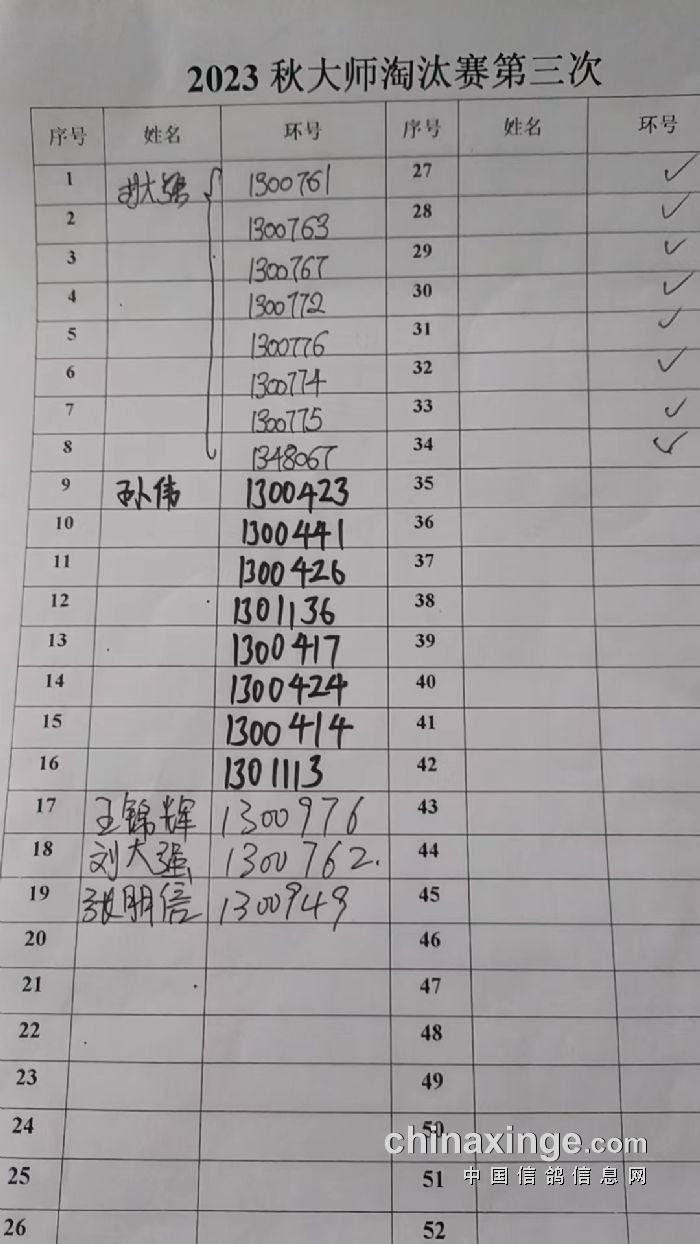 2023秋大师淘汰赛第三次
序号 姓名 环号 序号 姓名 环号
1 刘大强 1300761 27 ✓
2 1300763 28 ✓
3 1300767 29 ✓
4 1300772 30 ✓
5 1300776 31 ✓
6 1300774 32 ✓
7 1300775 33 ✓
8 1348067 34 ✓
9 孙伟 1300423 35
10 1300441 36
11 1300426 37
12 1301136 38
13 1300417 39
14 1300424 40
15 1300414 41
16 1301113 42
17 王锦辉 1300976 43
18 刘大强 1300762. 44
19 张朋信 1300949 45
20 46
21 47
22 48
23 49
24 50
chinaxinge.com
25 51 中国信鸽信息网
26 52